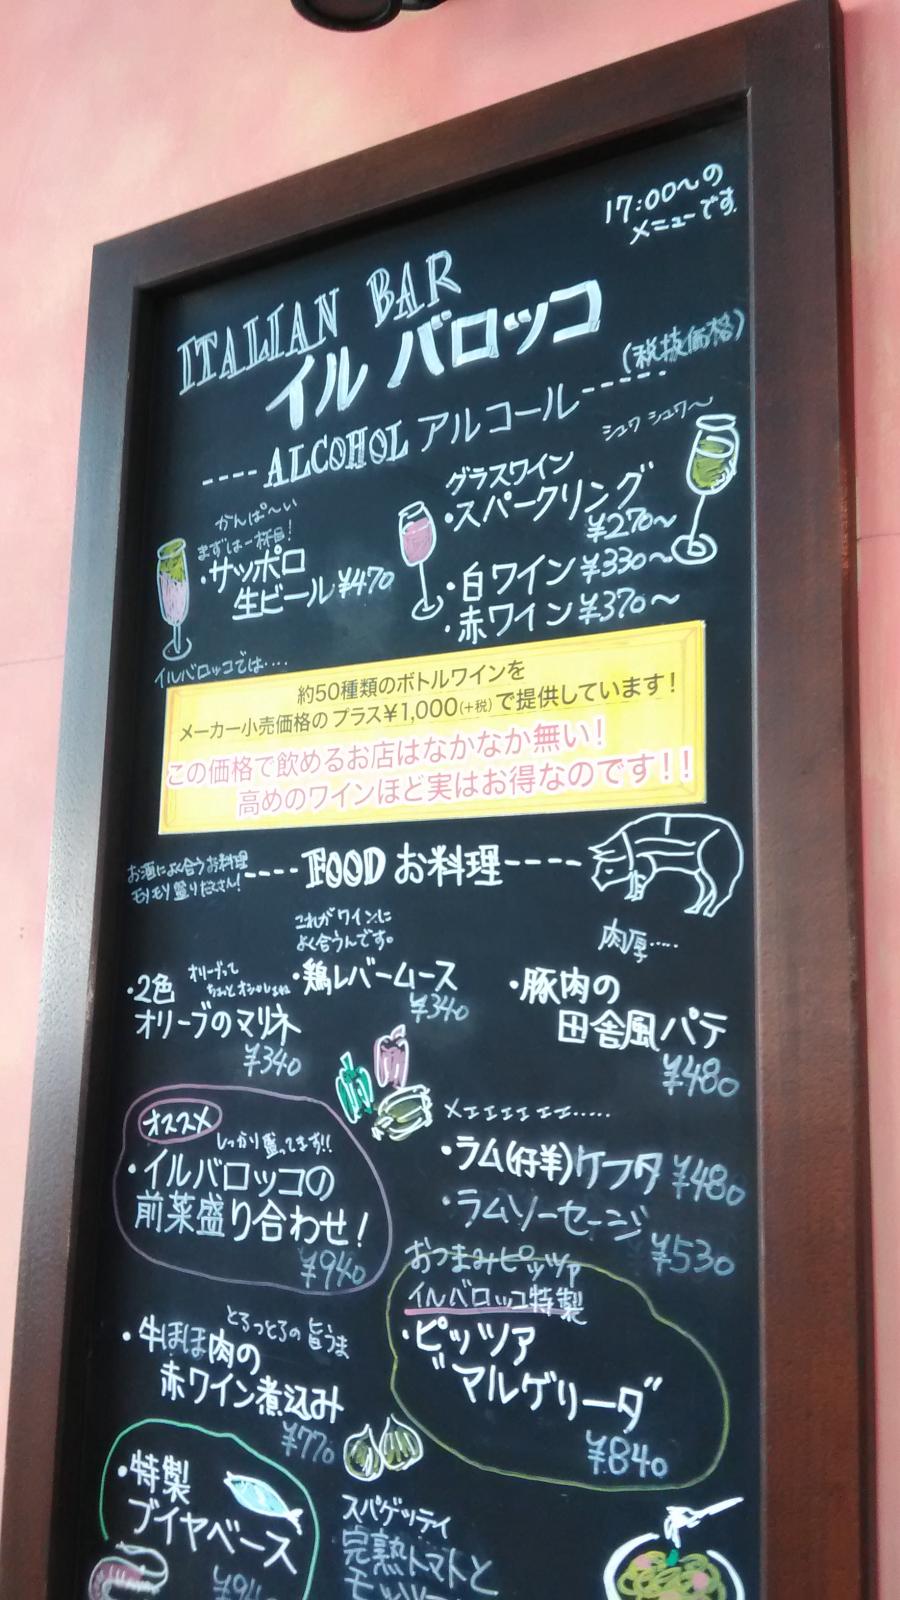 17:00〜の
メニューです
ITALIAN BAR
イル バロッコ
(税抜価格)
ALCOHOL アルコール
シュワ シュワ〜
かんぱ〜い
まずは一杯目!
・サッポロ
生ビール ¥470
グラスワイン
・スパークリング
¥270〜
・白ワイン ¥330〜
・赤ワイン ¥370〜
イルバロッコでは‥‥
約50種類のボトルワインを
メーカー小売価格の プラス¥1,000(+税)で提供しています!
この価格で飲めるお店はなかなか無い!
高めのワインほど実はお得なのです!!
お酒によく合うお料理
モリモリ盛りだくさん!
FOOD お料理
これがワインに
よく合うんです。
・2色
オリーブって
ちょっと
オリーブのマリネ
¥340
・鶏レバームース
¥340
肉厚‥‥
・豚肉の
田舎風パテ
¥480
オススメ
しっかり盛ってます!!
・イルバロッコの
前菜盛り合わせ!
¥940
メエエエエエエ‥‥
・ラム(仔羊)ケフタ ¥480
・ラムソーセージ
¥530
おつまみピッツァ
イルバロッコ特製
・ピッツァ
"マルゲリータ"
¥840
とろっとろの旨うま
・牛ほほ肉の
赤ワイン煮込み
¥770
・特製
ブイヤベース
スパゲッティ
完熟トマトと